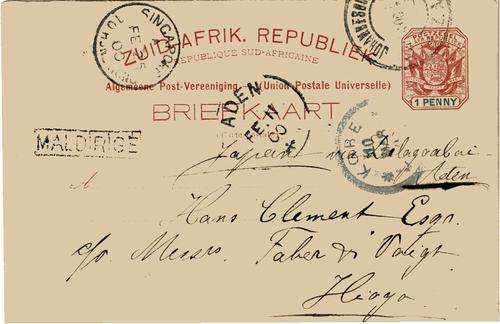 ZUID-AFRIK. REPUBLIEK
RÉPUBLIQUE SUD-AFRICAINE
Algemeene Post-Vereeniging (Union Postale Universelle)
BRIEFKAART
1 PENNY
SINGAPORE
FE 25
00
ADEN
FE 11
00
KOBE
10
MAR
MALDIRIGÉ
Japan via Delagoabai-
Aden
A
Hans Clement Esqr.
c/o Messrs. Faber & Voigt
Hiogo